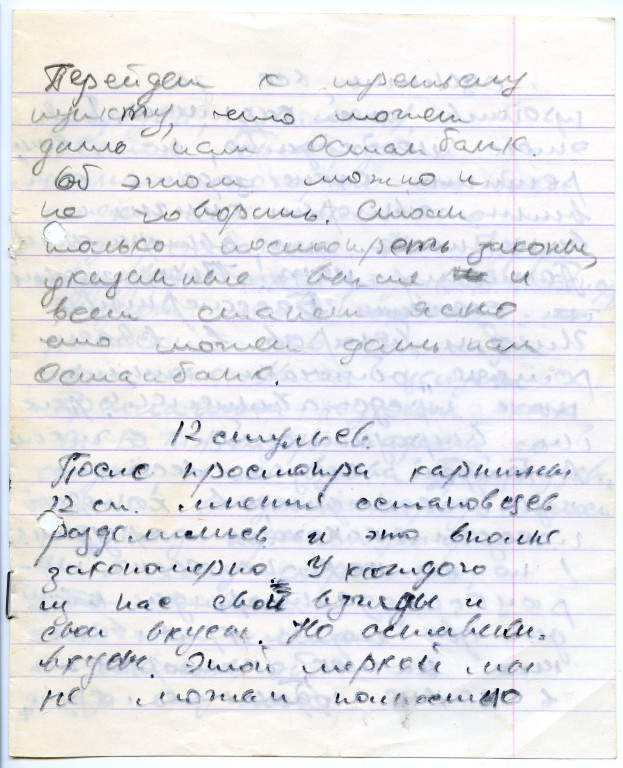 Перейдем к третьему
пункту, что может
дать нам Остап банк.
Об этом можно и
не говорить. Стоит
только посмотреть законы,
указанные выше и
всем станет ясно
что может дать нам
Остап банк.
12 стульев.
После просмотра картины
12 ст. мнения остаповцев
разделились и это вполне
закономерно. У каждого
из нас свои взгляды и
свои вкусы. Но оставим
вкусы. Этой меркой мы
не можем полностью